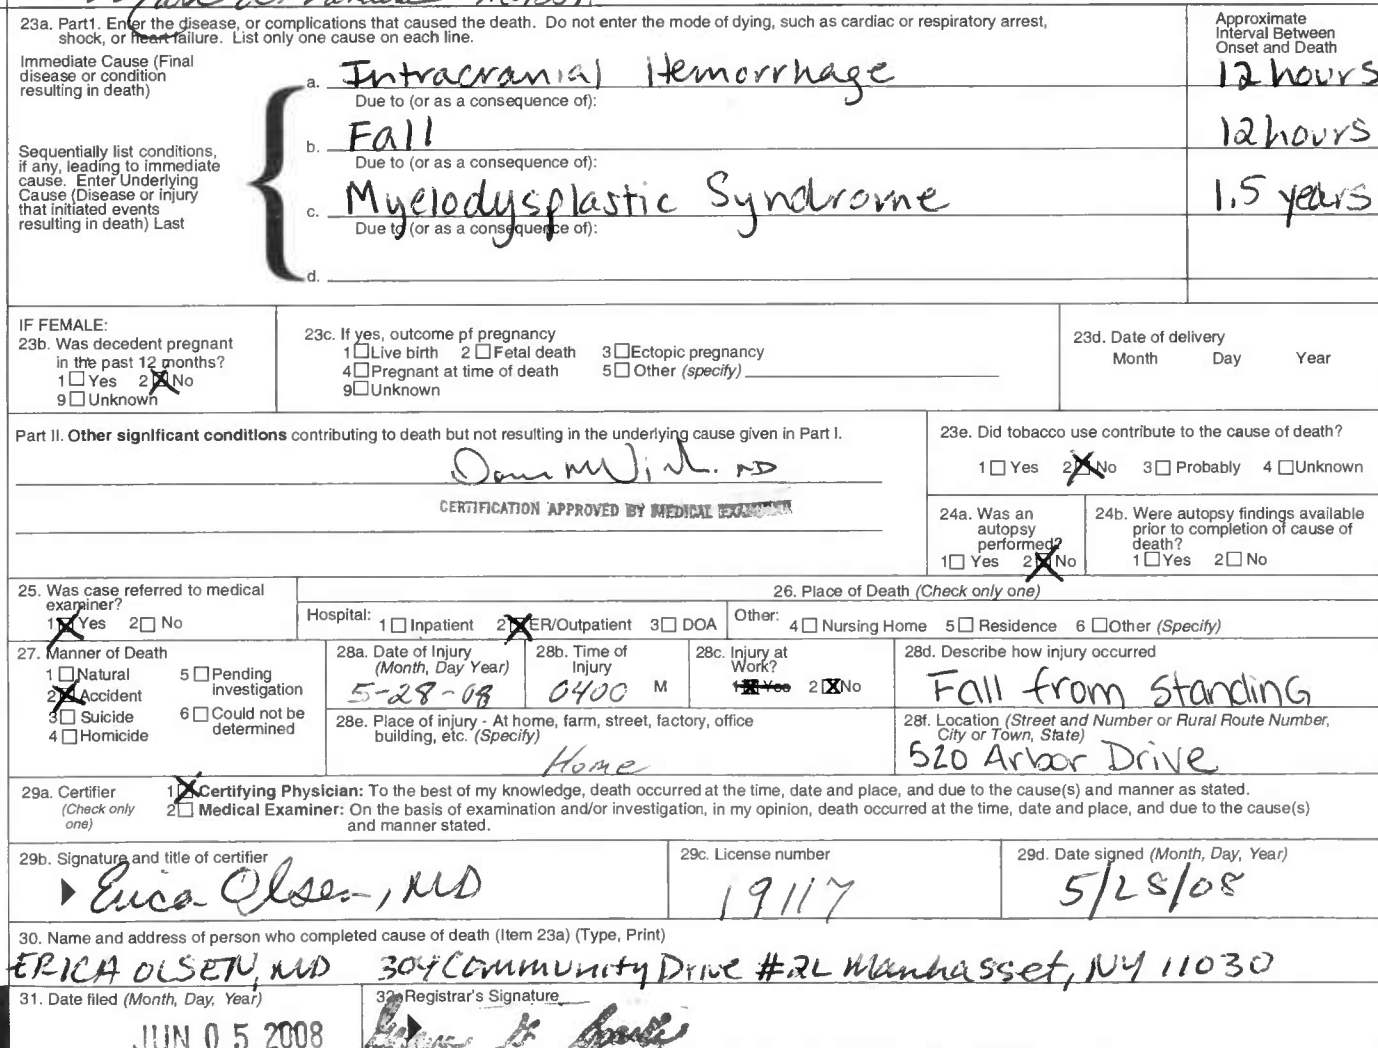 23a. Part1. Enter the disease, or complications that caused the death. Do not enter the mode of dying, such as cardiac or respiratory arrest,
shock, or heart failure. List only one cause on each line.
Approximate
Interval Between
Onset and Death
Immediate Cause (Final
disease or condition
resulting in death)
a. Intracranial Hemorrhage 12 hours
Due to (or as a consequence of):
b. Fall 12 hours
Due to (or as a consequence of):
Sequentially list conditions,
if any, leading to immediate
cause. Enter Underlying
Cause (Disease or injury
that initiated events
resulting in death) Last
c. Myelodysplastic Syndrome 1.5 years
Due to (or as a consequence of):
d.
IF FEMALE:
23b. Was decedent pregnant
in the past 12 months?
1 Yes 2 No
9 Unknown
23c. If yes, outcome pf pregnancy
1 Live birth 2 Fetal death 3 Ectopic pregnancy
4 Pregnant at time of death 5 Other (specify)
9 Unknown
23d. Date of delivery
Month Day Year
Part II. Other significant conditions contributing to death but not resulting in the underlying cause given in Part I.
MD
CERTIFICATION APPROVED BY MEDICAL EXAMINER
23e. Did tobacco use contribute to the cause of death?
1 Yes 2 No 3 Probably 4 Unknown
24a. Was an
autopsy
performed?
1 Yes 2 No
24b. Were autopsy findings available
prior to completion of cause of
death?
1 Yes 2 No
25. Was case referred to medical
examiner?
1 Yes 2 No
26. Place of Death (Check only one)
Hospital: 1 Inpatient 2 ER/Outpatient 3 DOA Other: 4 Nursing Home 5 Residence 6 Other (Specify)
27. Manner of Death
1 Natural 5 Pending
investigation
2 Accident
3 Suicide 6 Could not be
determined
4 Homicide
28a. Date of Injury
(Month, Day Year)
5-28-08
28b. Time of
Injury
0400 M
28c. Injury at
Work?
1 Yes 2 X No
28d. Describe how injury occurred
Fall from standing
28e. Place of injury - At home, farm, street, factory, office
building, etc. (Specify)
Home
28f. Location (Street and Number or Rural Route Number,
City or Town, State)
520 Arbor Drive
29a. Certifier
(Check only
one)
1 Certifying Physician: To the best of my knowledge, death occurred at the time, date and place, and due to the cause(s) and manner as stated.
2 Medical Examiner: On the basis of examination and/or investigation, in my opinion, death occurred at the time, date and place, and due to the cause(s)
and manner stated.
29b. Signature and title of certifier
Erica Olsen, MD
29c. License number
19117
29d. Date signed (Month, Day, Year)
5/28/08
30. Name and address of person who completed cause of death (Item 23a) (Type, Print)
ERICA OLSEN, MD 304 Community Drive #2L Manhasset, NY 11030
31. Date filed (Month, Day, Year)
JUN 05 2008
32. Registrar's Signature